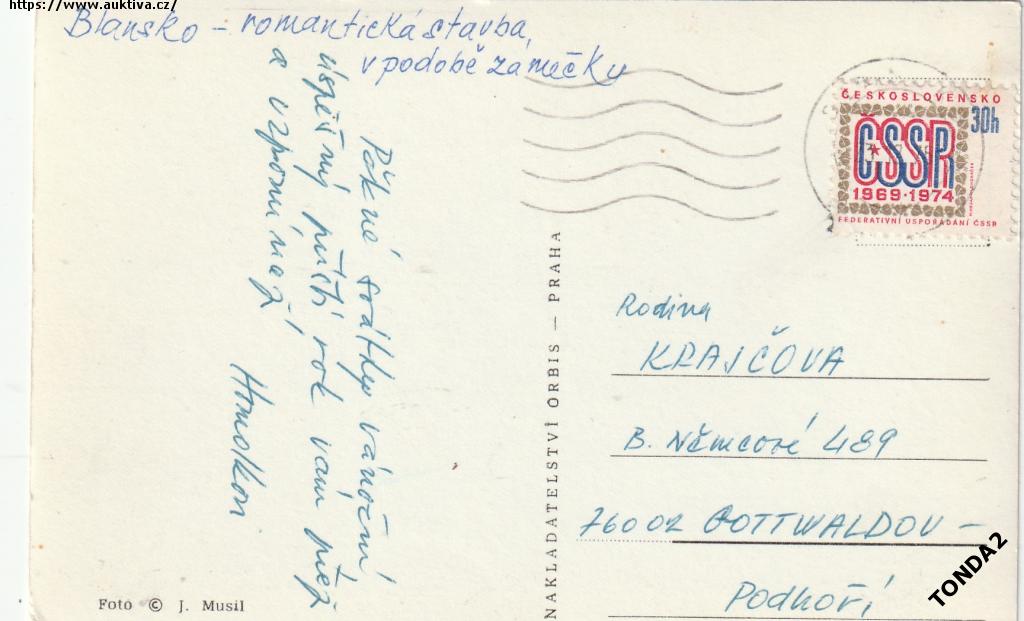 https://www.auktiva.cz/
Blansko – romantická stavba,
v podobě zámečku
Pěkné svátky vánoční
úspěšný příští rok vám přej
a vzpomínaj
Homolkovi
Foto © J. Musil
NAKLADATELSTVÍ ORBIS — PRAHA
ČESKOSLOVENSKO
30h
ČSSR
1969·1974
FEDERATIVNÍ USPOŘÁDÁNÍ ČSSR
Rodina
KRAJČOVA
B. Němcové 489
76002 GOTTWALDOV –
Podhoří
TONDA2